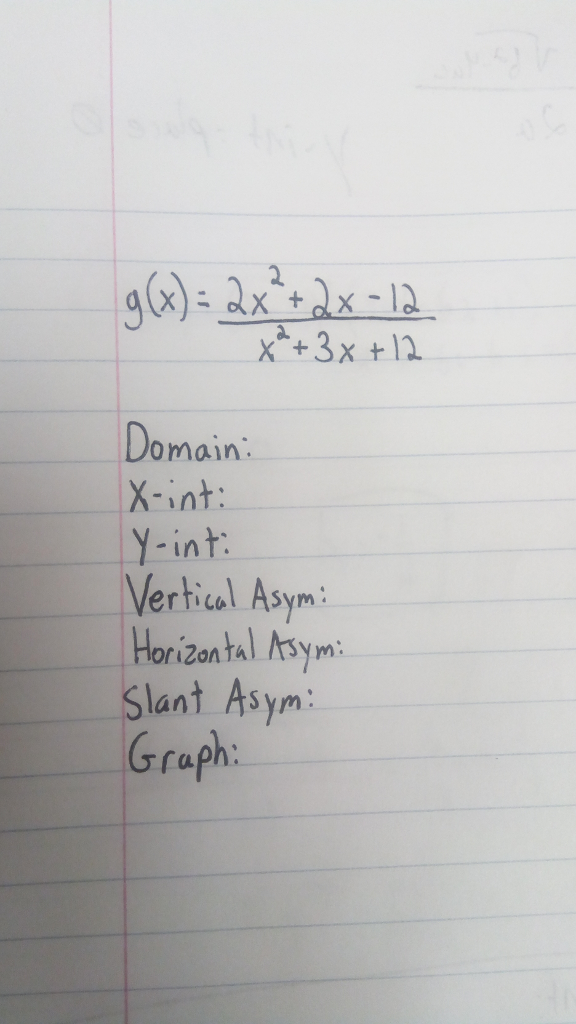 g(x) = 2x² + 2x - 12
x² + 3x + 12
Domain:
X-int:
Y-int:
Vertical Asym:
Horizontal Asym:
Slant Asym:
Graph: